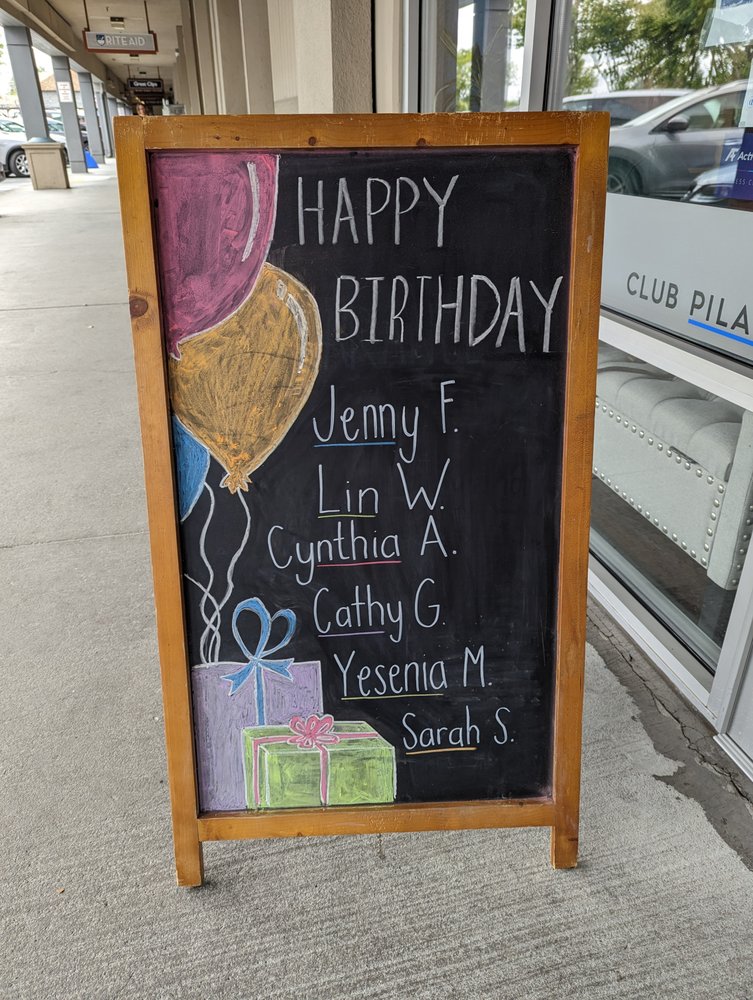 RITE AID
Great Clips
HAPPY
BIRTHDAY
Jenny F.
Lin W.
Cynthia A.
Cathy G.
Yesenia M.
Sarah S.
CLUB PILA